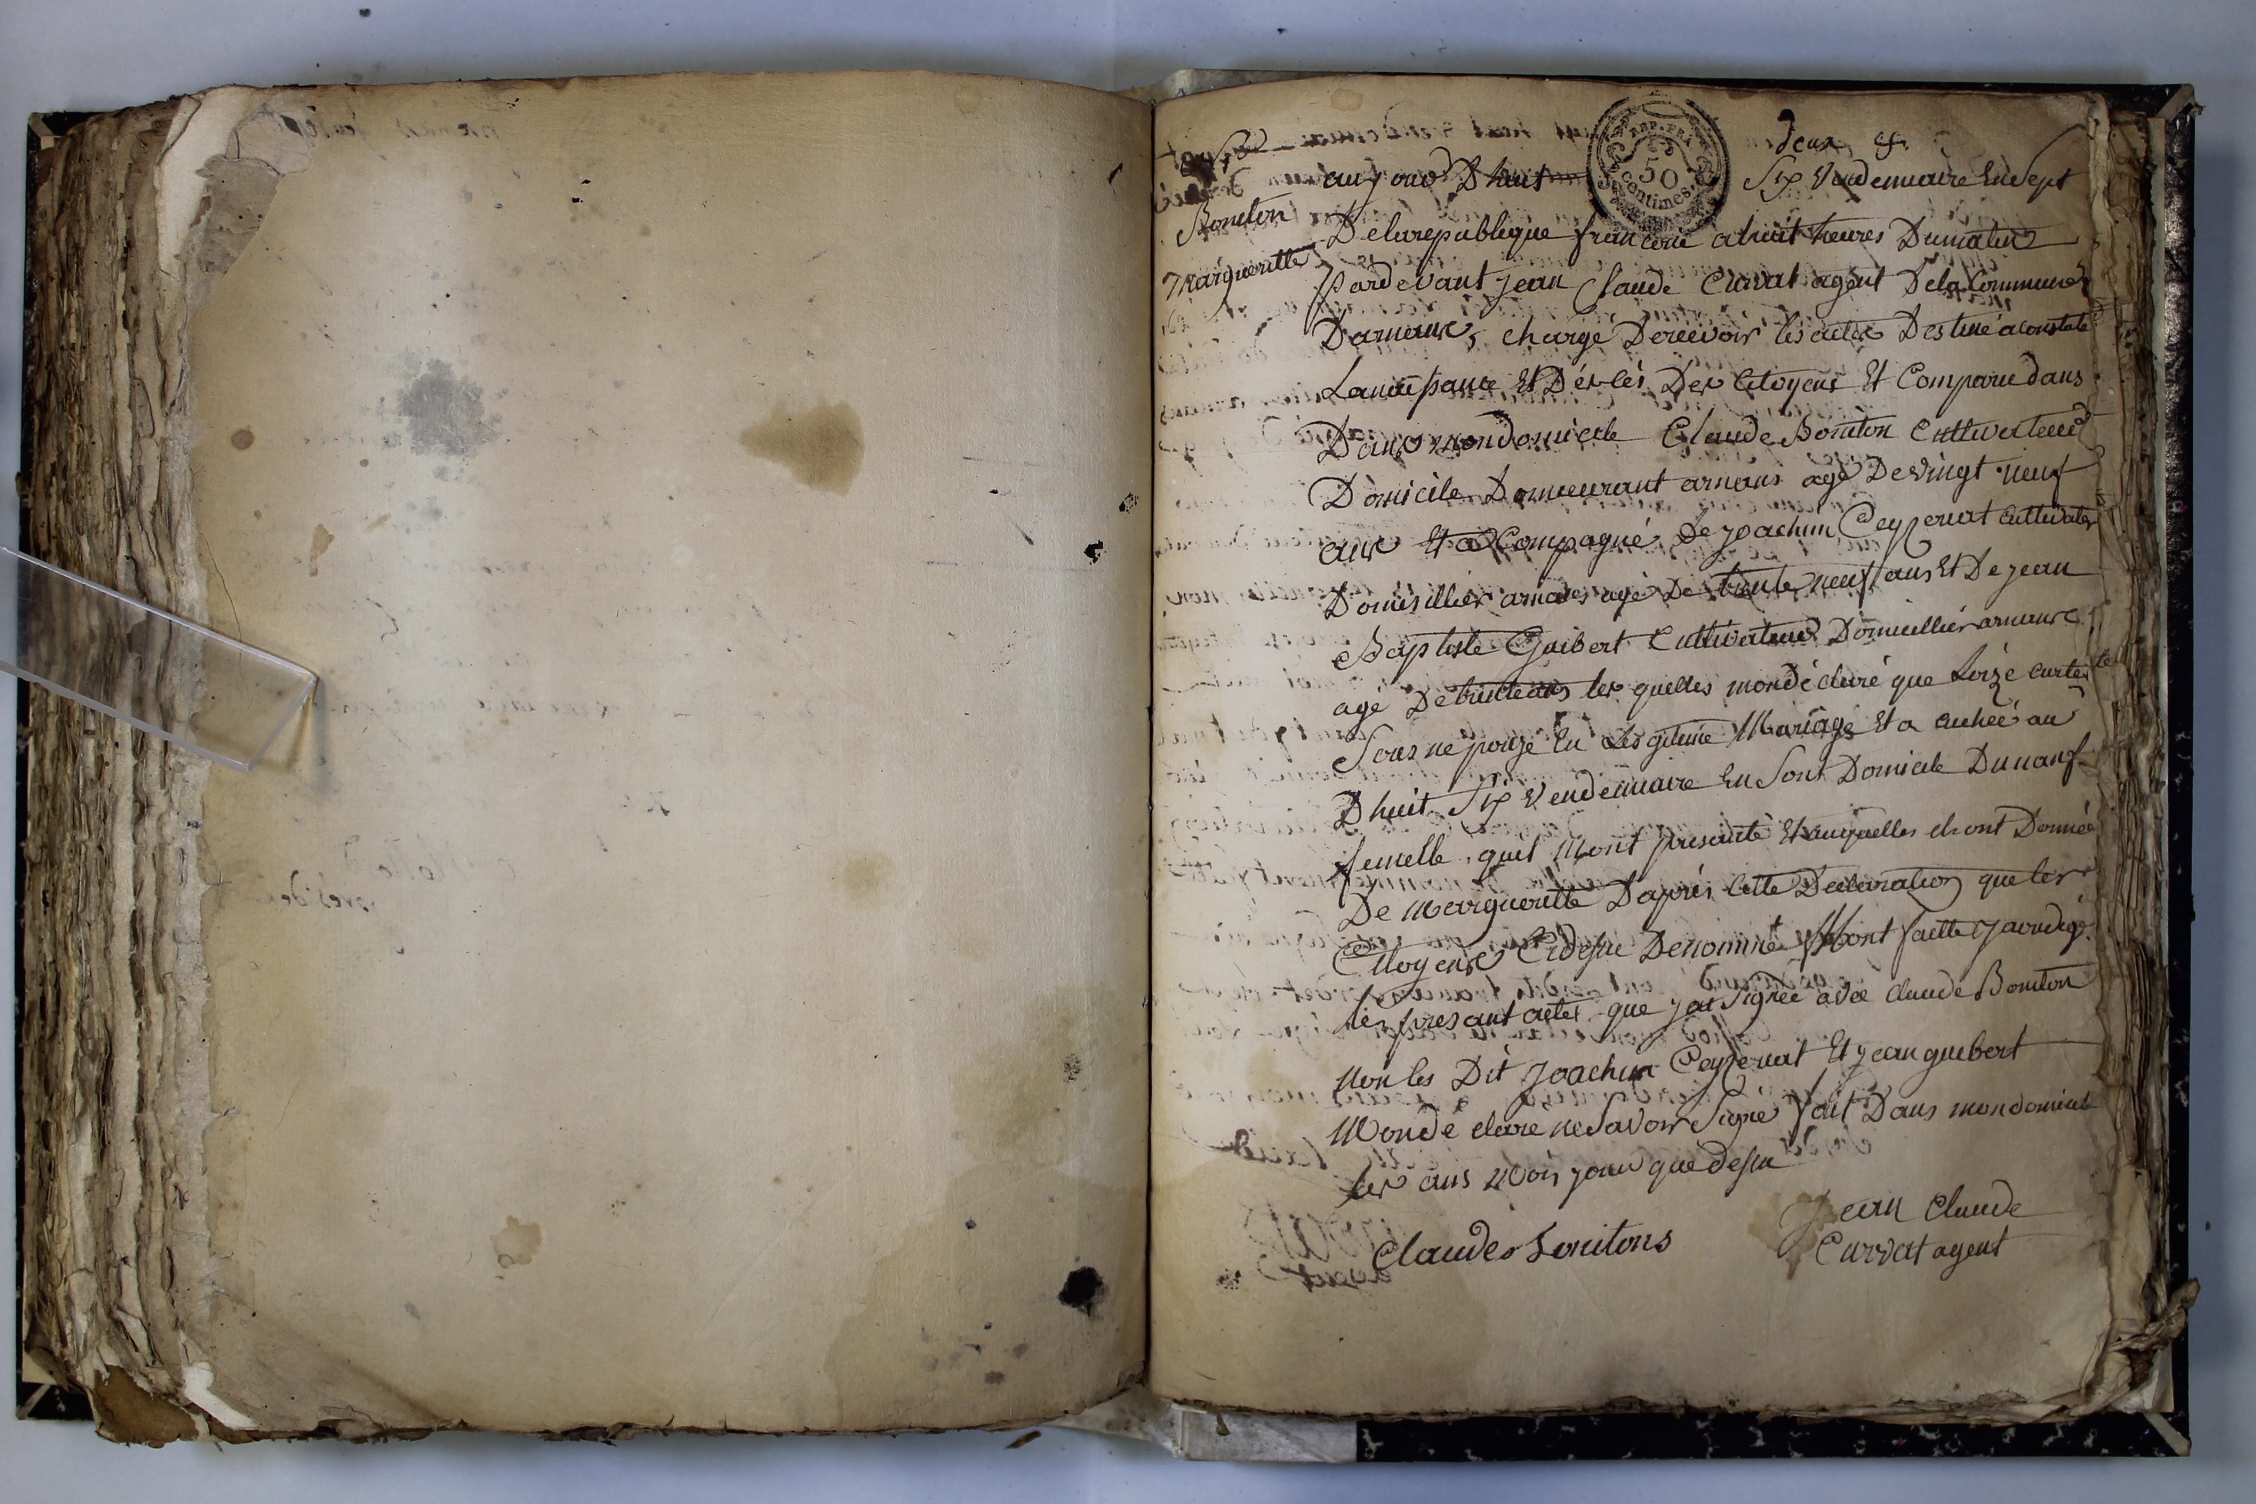 deux
Bouilon
Margueritte
REP. FRA.
50
centimes
aujourd Dhuit Six Vendemiaire En Sept
De la republique francoise a huit heures Du matin
Pardevant jean Claude Curvat agent De la Commune
Darnans, chargé De recevoir les actes Destiné a constaté
La naissance Et Décès Des Citoyens Et Comparu dans
Dans mon domicile Claude Bouiton Cultivateur
Domicile Demeurant arnans agé De vingt neuf
ans Et acompagné De joachim Ceyzeriat cultivater
Domisillier arnans agé De trente neuf ans Et De jean
Baptiste Guibert Cultivateur Domicillier arnans
agé De trente ans les quelles mon dé claré que Loize
Son ne pouze En Légitime Mariage Et a cuchéé au
D huit Six Vendemiaire En Sont Domicile Dunanf
femelle quil Mont presanté Et auquelles il ont Donnée
De Marguerritte Daprés cette Declaration que les
Citoyens Cidesue Denommé Mont faitte jai
les presant actes que jai Signée avec Claude Bouiton
Non les Dit Joachim Ceyzeriat Et jean guibert
Mon dé clare ne Savoir Signé fait Dans mon domicile
les ans Mois jour que desu
Claude Bouitons
Jean Claude
Curvat agent